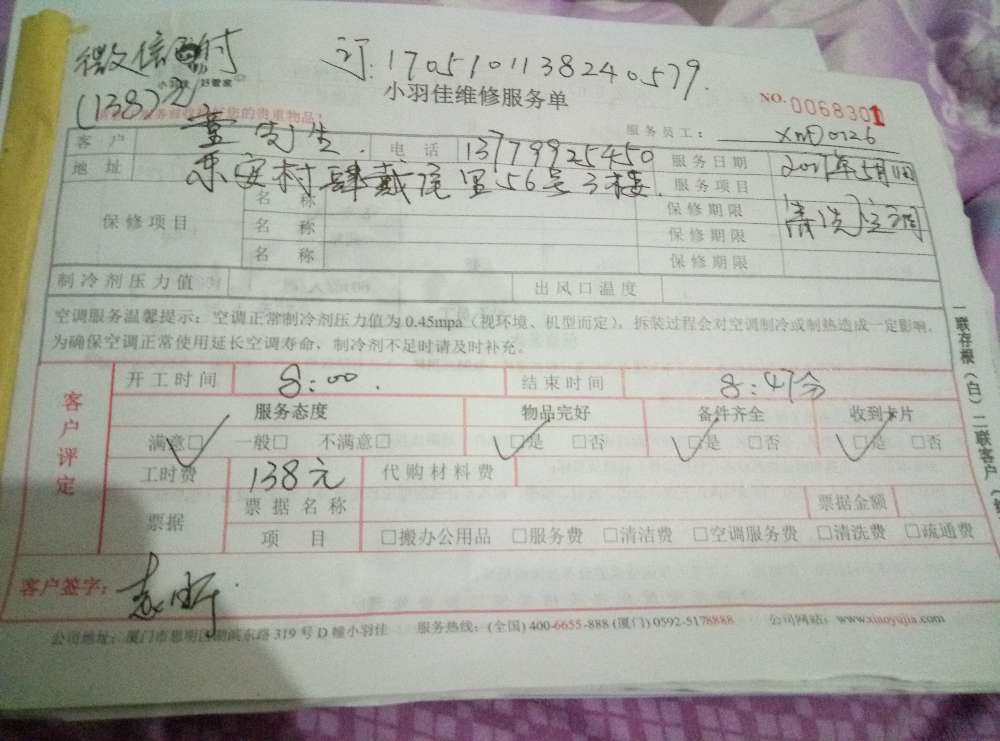 微信 付 订:170510113824 0579.
小羽佳 好管家
(138)元 小羽佳维修服务单 NO.0068301
您的贵重物品!
服务员工: XMD0126
客户 董先生. 电话 13779925450 服务日期 2017年5月11日
地址 东安村肆戴尾里56号3楼. 服务项目 清洗空调
保修项目 名称 保修期限
名称 保修期限
名称 保修期限
制冷剂压力值 出风口温度
空调服务温馨提示:空调正常制冷剂压力值为0.45mpa(视环境、机型而定),拆装过程会对空调制冷或制热造成一定影响.
为确保空调正常使用延长空调寿命、制冷剂不足时请及时补充。
客户评定
开工时间 8:00. 结束时间 8:47分
服务态度 物品完好 备件齐全 收到卡片
满意□ 一般□ 不满意□ □是 □否 □是 □否 □是 □否
工时费 138元 代购材料费
票据 票据名称 票据金额
项目 □搬办公用品 □服务费 □清洁费 □空调服务费 □清洗费 □疏通费
客户签字:
公司地址:厦门市思明区湖滨东路319号D幢小羽佳 服务热线:(全国)400-6655-888(厦门)0592-5178888 公司网站:www.xiaoyujia.com
一联存根(白)二联客户(